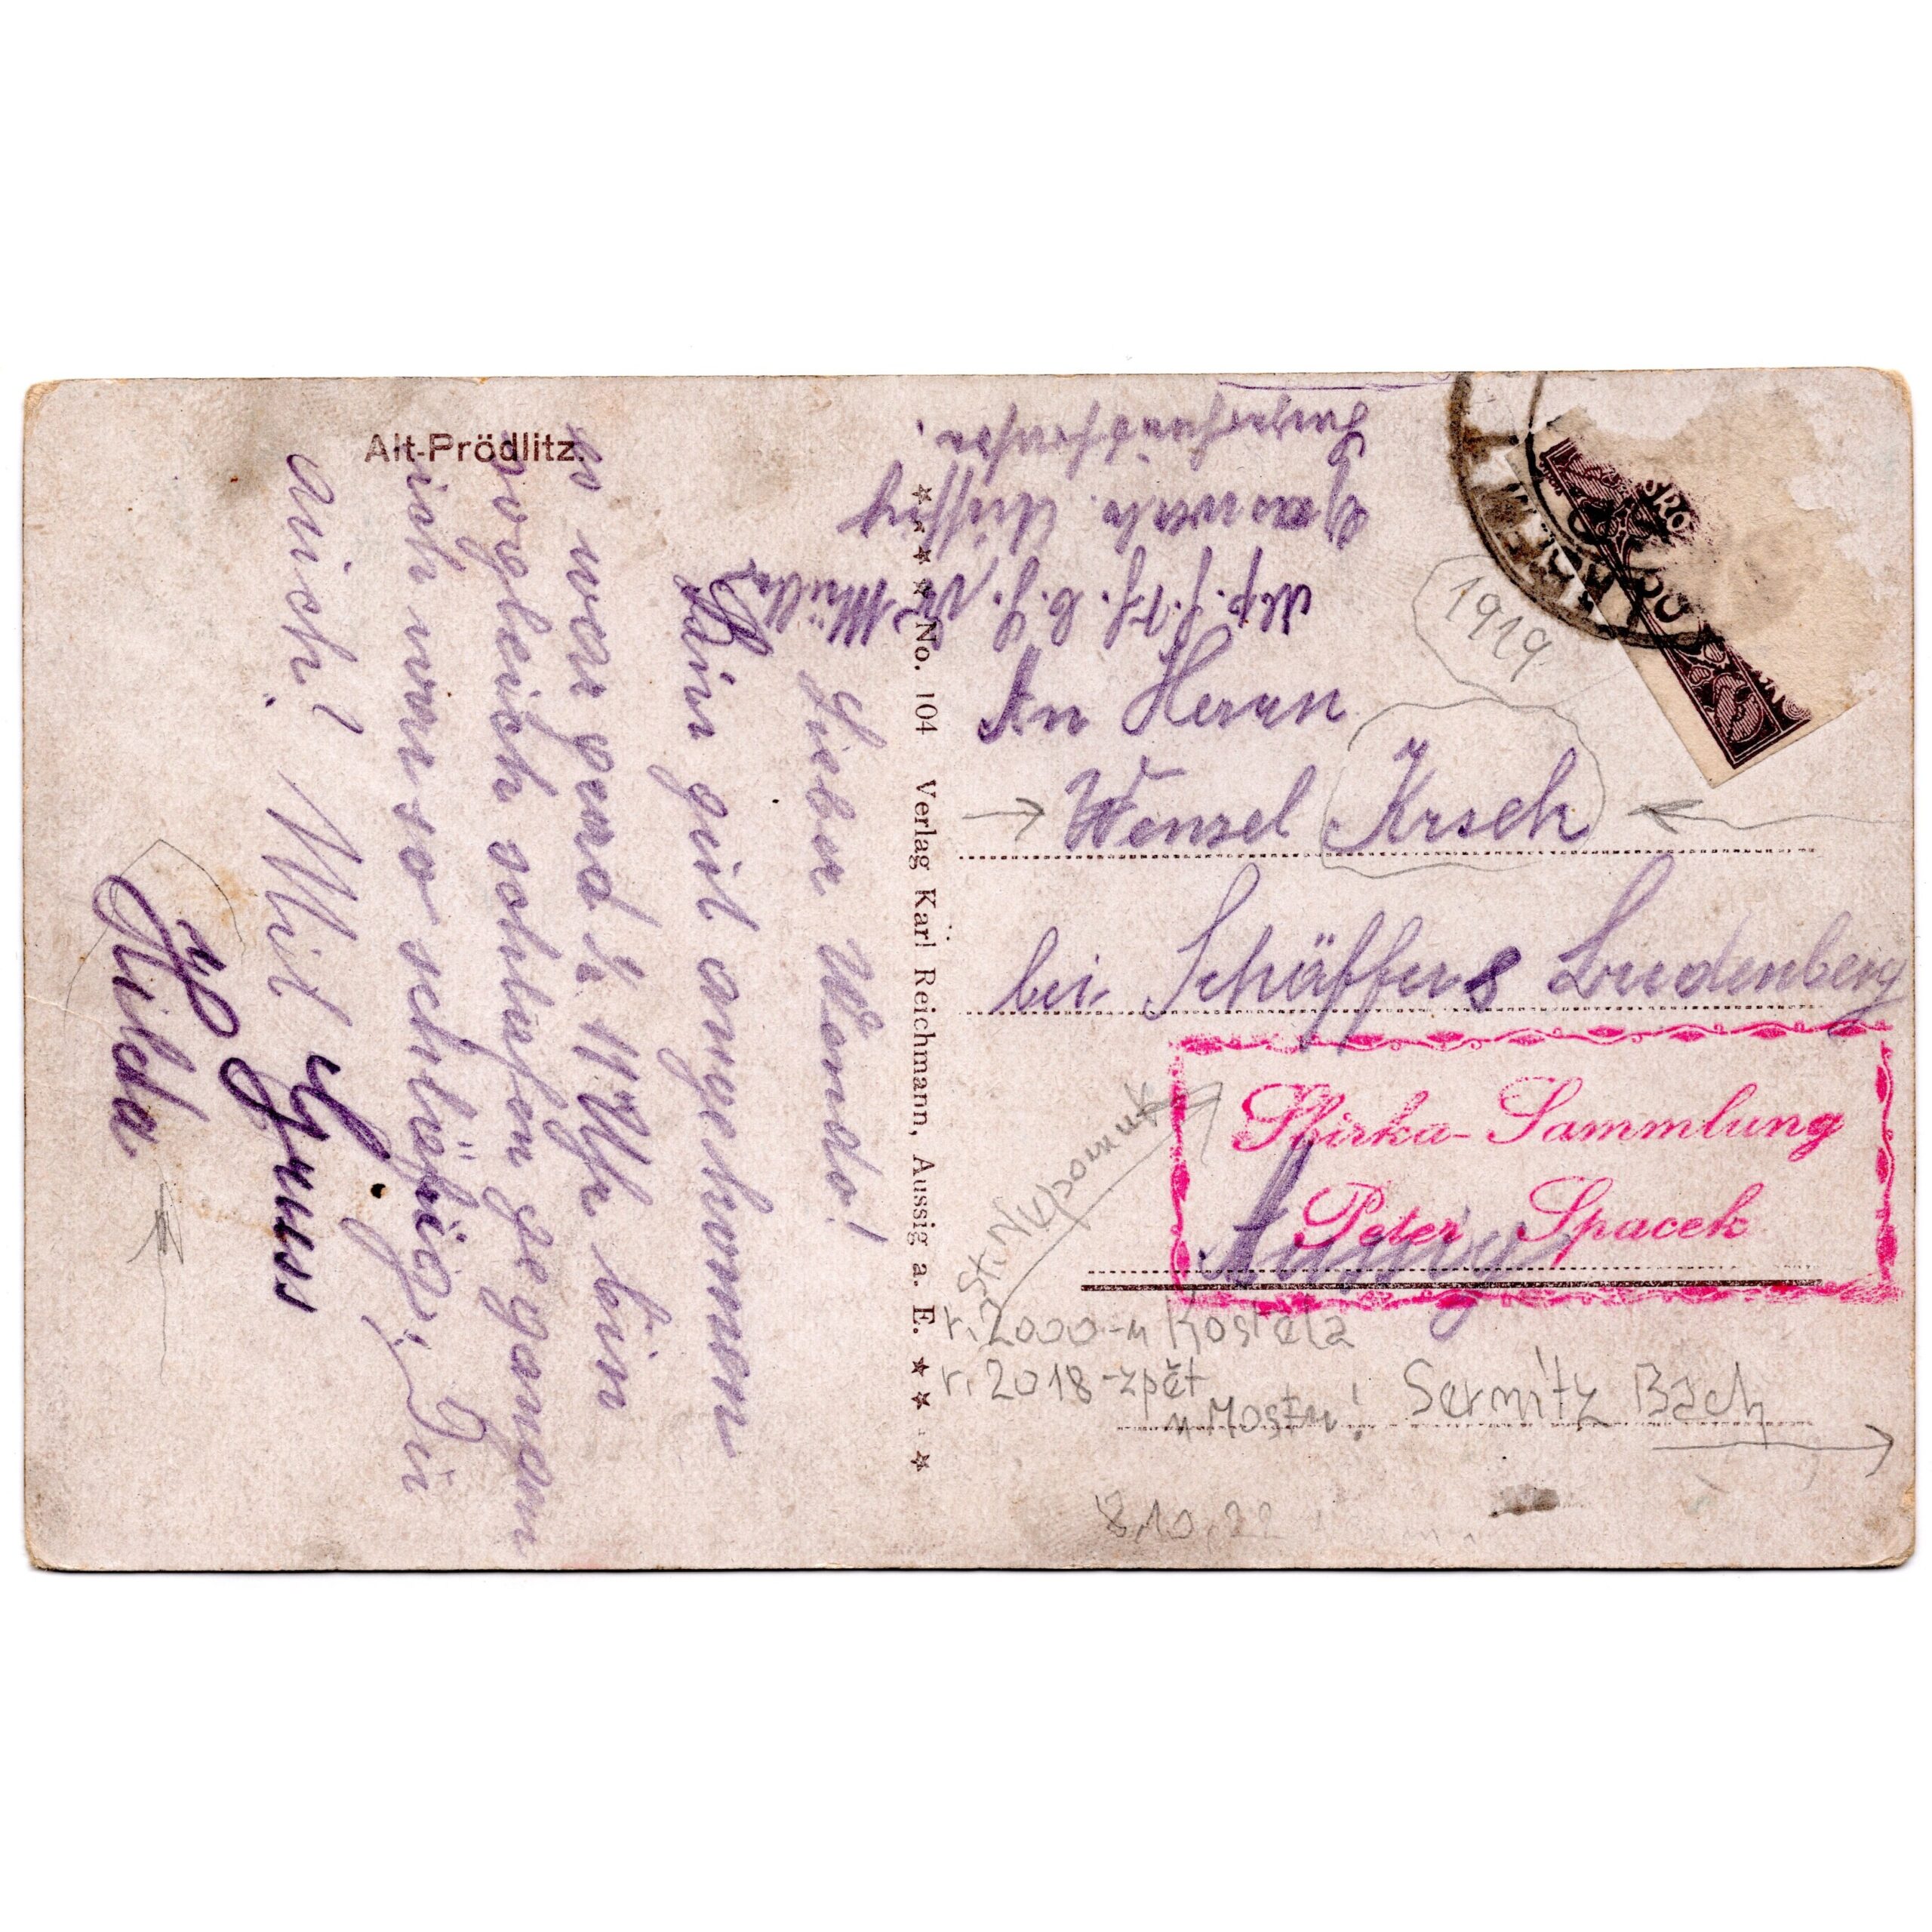 Alt-Prödlitz.
Lieber Wendo!
Bin gut angekommen
es war gerad ¾ 11 Uhr bin
sogleich schlafen gegangen
ich war so schläfrig, Du
auch? Mit
Gruss
Hilda
★ ★ ★ ★ No. 104 Verlag Karl Reichmann, Aussig a. E. ★ ★ ★ ★
Müller
Aussig
1919
An Herrn
Wenzel Krsek
bei Schäffers Ludenberg
Aussig
Sbirka-Sammlung
Peter Spacek
St. Nepomuk
r. 2000-u Kostela
r. 2018-zpět
u Mostu!
Sernitz Bach
8.10.22